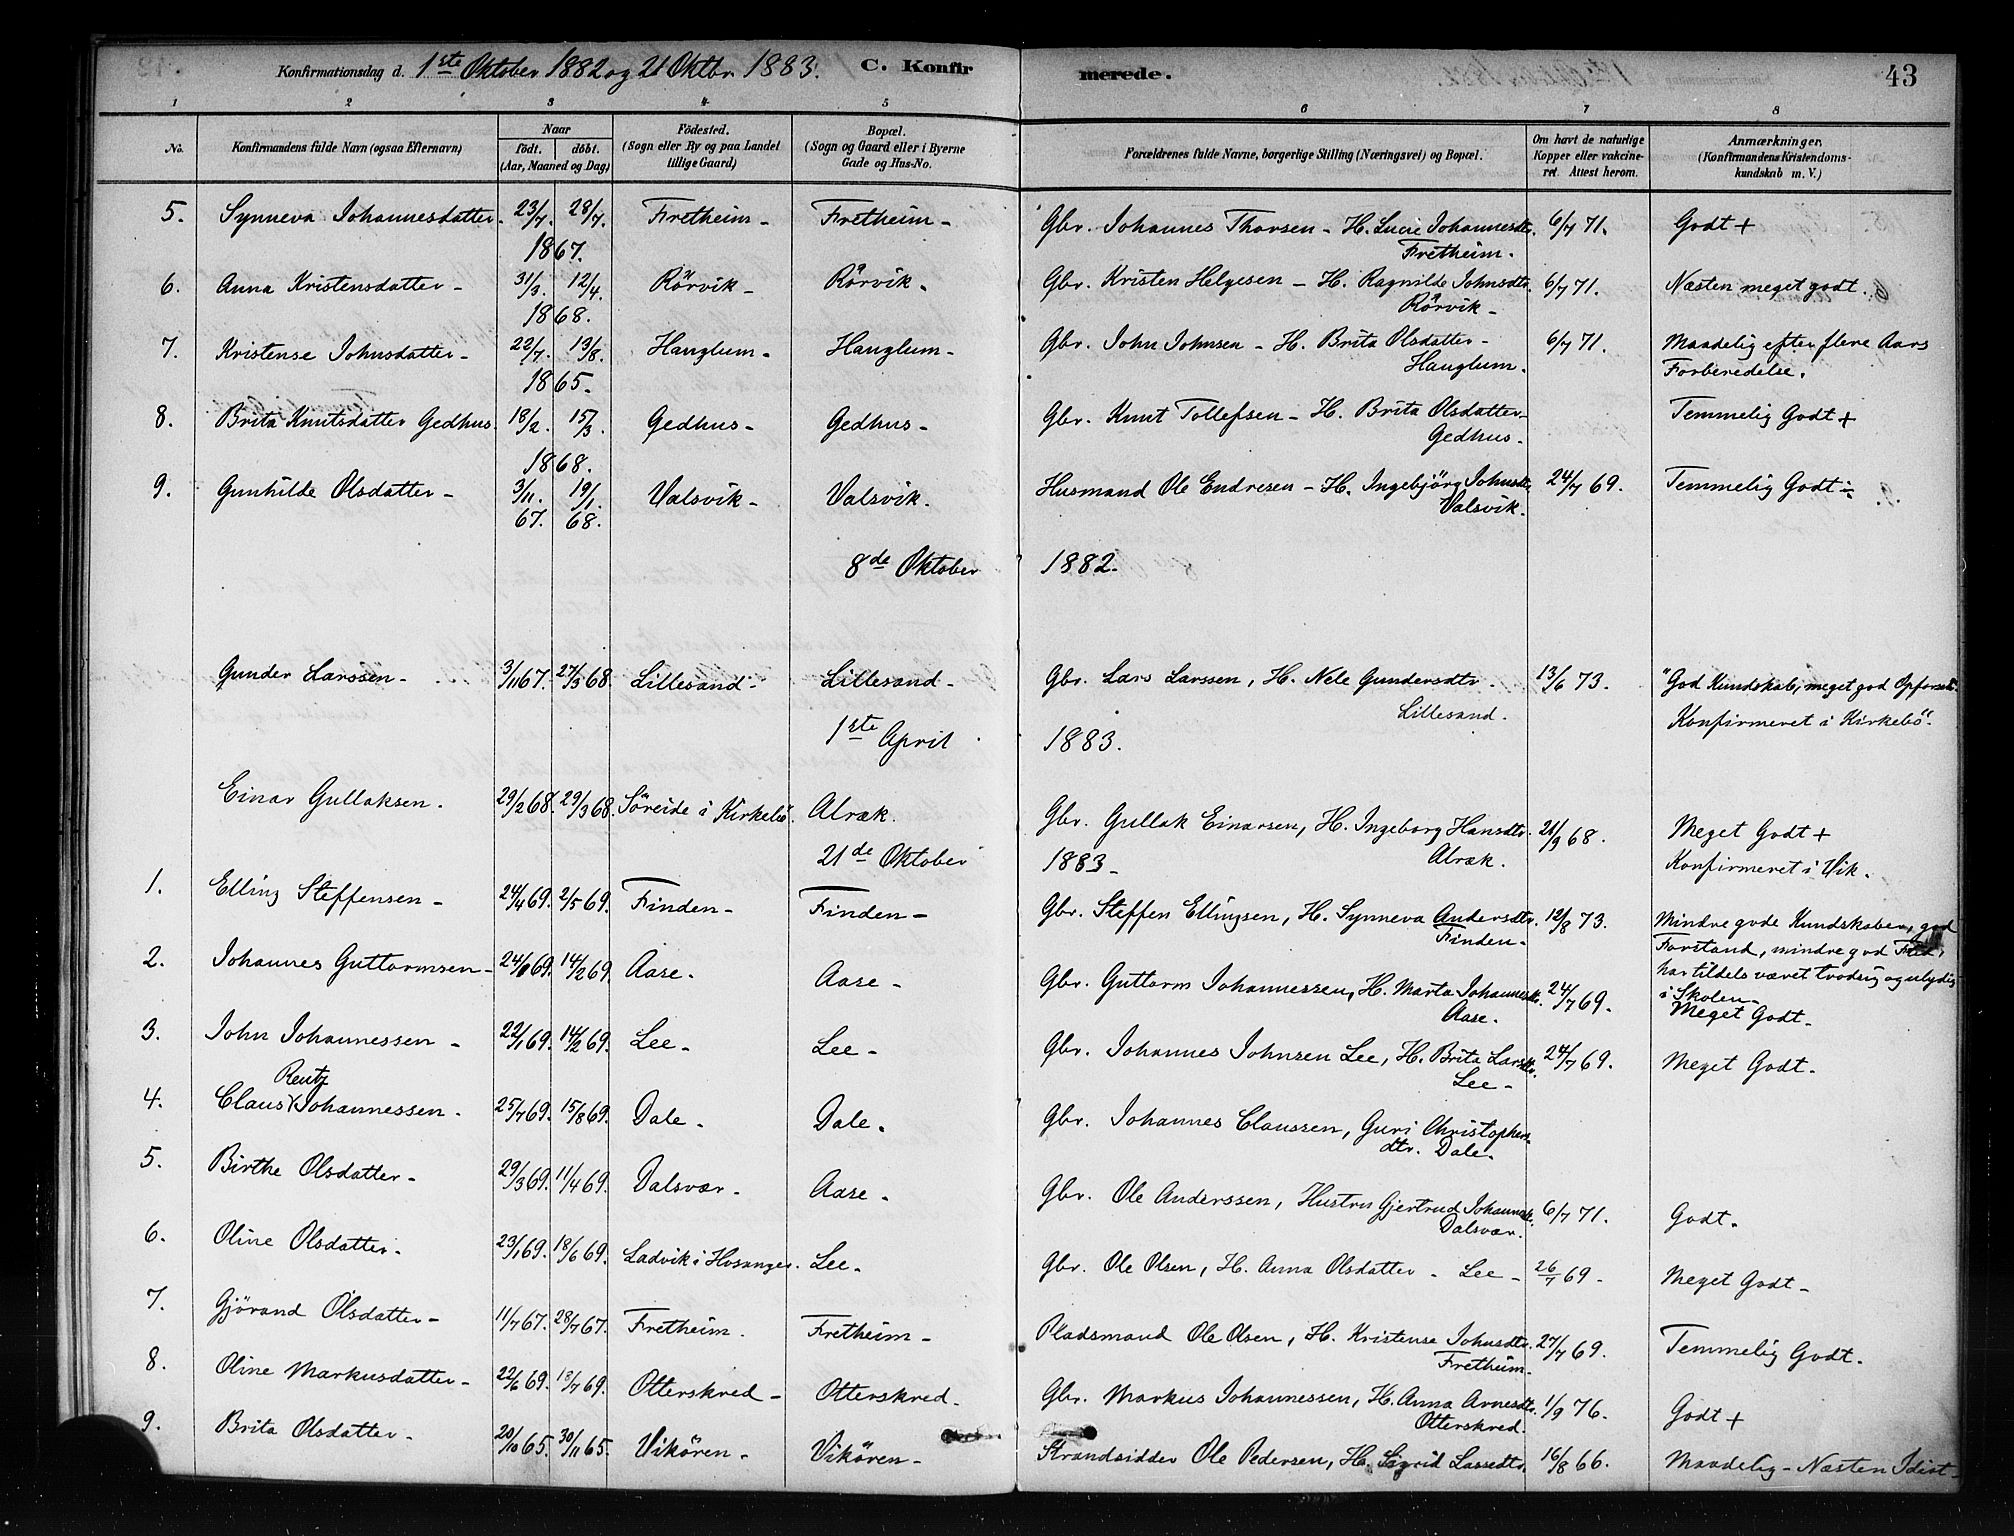 Konfirmationsdag d. 1ste Oktober 1882 og 21 Oktbr. 1883. C. Konfirmerede. 43
1 2 3 4 5 6 7 8
No. Konfirmandens fulde Navn (ogsaa Efternavn) Naar födt. döbt. (Aar, Maaned og Dag) Födested. (Sogn eller By og paa Landet tillige Gaard) Bopæl. (Sogn og Gaard eller i Byerne Gade og Hus-No. Forældrenes fulde Navne, borgerlige Stilling (Næringsvei) og Bopæl. Om havt de naturlige Kopper eller vakcineret. Attest herom. Anmærkninger. (Konfirmandens Kristendomskundskab m. V.)
5. Synneva Johannesdatter. 23/7. 28/7. Fretheim - Fretheim - Gbr. Johannes Thorsen - H. Lucie Johannesdtr. 6/7 71. Godt +
1867. Fretheim.
6. Anna Kristensdatter - 31/3. 12/4. Rörvik - Rörvik. Gbr. Kristen Helgesen - H. Ragnilde Johnsdtr. 6/7 71. Næsten meget godt.
1868. Rörvik -
7. Kristense Johnsdatter - 22/7. 13/8. Hauglum - Hauglum - Gbr. John Johnsen - H. Brita Olsdatter - 6/7 71. Maadelig efter flere Aars
1865. Hauglum. Forberedelse.
8. Brita Knutsdatter Gedhus. 18/2. 15/3. Gedhus - Gedhus - Gbr. Knut Tollefsen - H. Brita Olsdatter - Temmelig Godt +
1868. Gedhus.
9. Gunhilde Olsdatter - 3/11. 19/1. Valsvik - Valsvik. Husmand Ole Endresen - H. Ingebjörg Johnsdtr. 24/7 69. Temmelig Godt ÷
67. 68. Valsvik.
8de Oktober 1882.
Gunder Larssen - 3/11 67. 27/3 68. Lillesand - Lillesand - Gbr. Lars Larssen, H. Nele Gundersdtr. 13/6 73. "God Kundskab, meget god Opførsel.
Lillesand. Konfirmeret i Kirkebö".
1ste April 1883.
Einar Gullaksen. 29/2 68. 29/3 68. Söreide i Kirkebö. Alræk. Gbr. Gullak Einarsen, H. Ingeborg Hansdtr. 21/9 68. Meget Godt +
Alræk. Konfirmeret i Vik.
21de Oktober 1883 -
1. Elling Steffensen - 24/4 69. 2/5 69. Finden - Finden - Gbr. Steffen Ellingsen, H. Synneva Andersdtr. 12/8 73. Mindre gode Kundskaber, god
Finden - Forstand, mindre god Flid,
har tildels været trodsig og ulydig
i Skolen -
2. Johannes Guttormsen - 24/ 69. 14/2 69. Aase. Aase - Gbr. Guttorm Johannessen, H. Marta Johannesdtr. 24/7 69. Meget Godt.
Aase.
3. John Johannessen - 22/1 69. 14/2 69. Lee - Lee - Gbr. Johannes Johnsen Lee, H. Brita Larsdtr. 24/7 69. Meget Godt.
Lee -
Reutz
4. Claus Johannessen - 25/7 69. 15/8 69. Dale. Dale. Gbr. Johannes Claussen, Guri Christophers
dtr. Dale.
5. Birthe Olsdatter - 29/3 69. 11/4 69. Dalsvær. Aase - Gbr. Ole Anderssen, Hustru Gjertrud Johannesdtr. 6/7 71. Godt.
Dalsvær.
6. Oline Olsdatter. 23/1 69. 18/6 69. Ladvik i Hosanger. Lee - Gbr. Ole Olsen, H. Anna Olsdatter - Lee - 26/7 69 - Meget Godt -
7. Gjörand Olsdatter - 11/7 67. 28/7 67. Fretheim. Fretheim - Pladsmand Ole Olsen, H. Kristense Johnsdtr. 27/7 69. Temmelig Godt.
Fretheim.
8. Oline Markusdatter - 22/6 69. 18/7 69. Otterskred - Otterskred. Gbr. Markus Johannessen, H. Anna Arnesdtr. 1/9 76. Godt +
Otterskred.
9. Brita Olsdatter. 20/10 65. 30/11 65. Vikören. Vikören - Strandsidder Ole Pedersen, H. Sigrid Lassedtr. 16/8 66. Maadelig - Næsten Idiot -